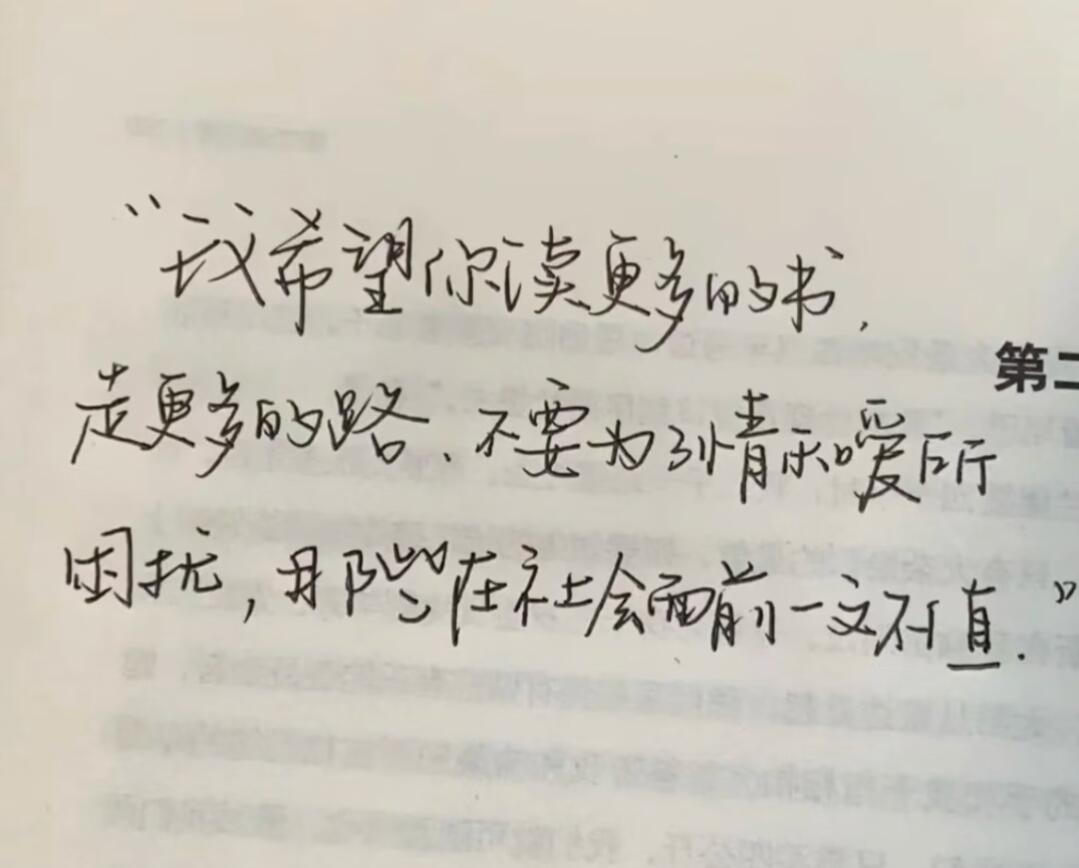 “我希望你读更多的书,
第二
走更多的路、不要为了情和暧所
困扰,那些在社会面前一文不值.”